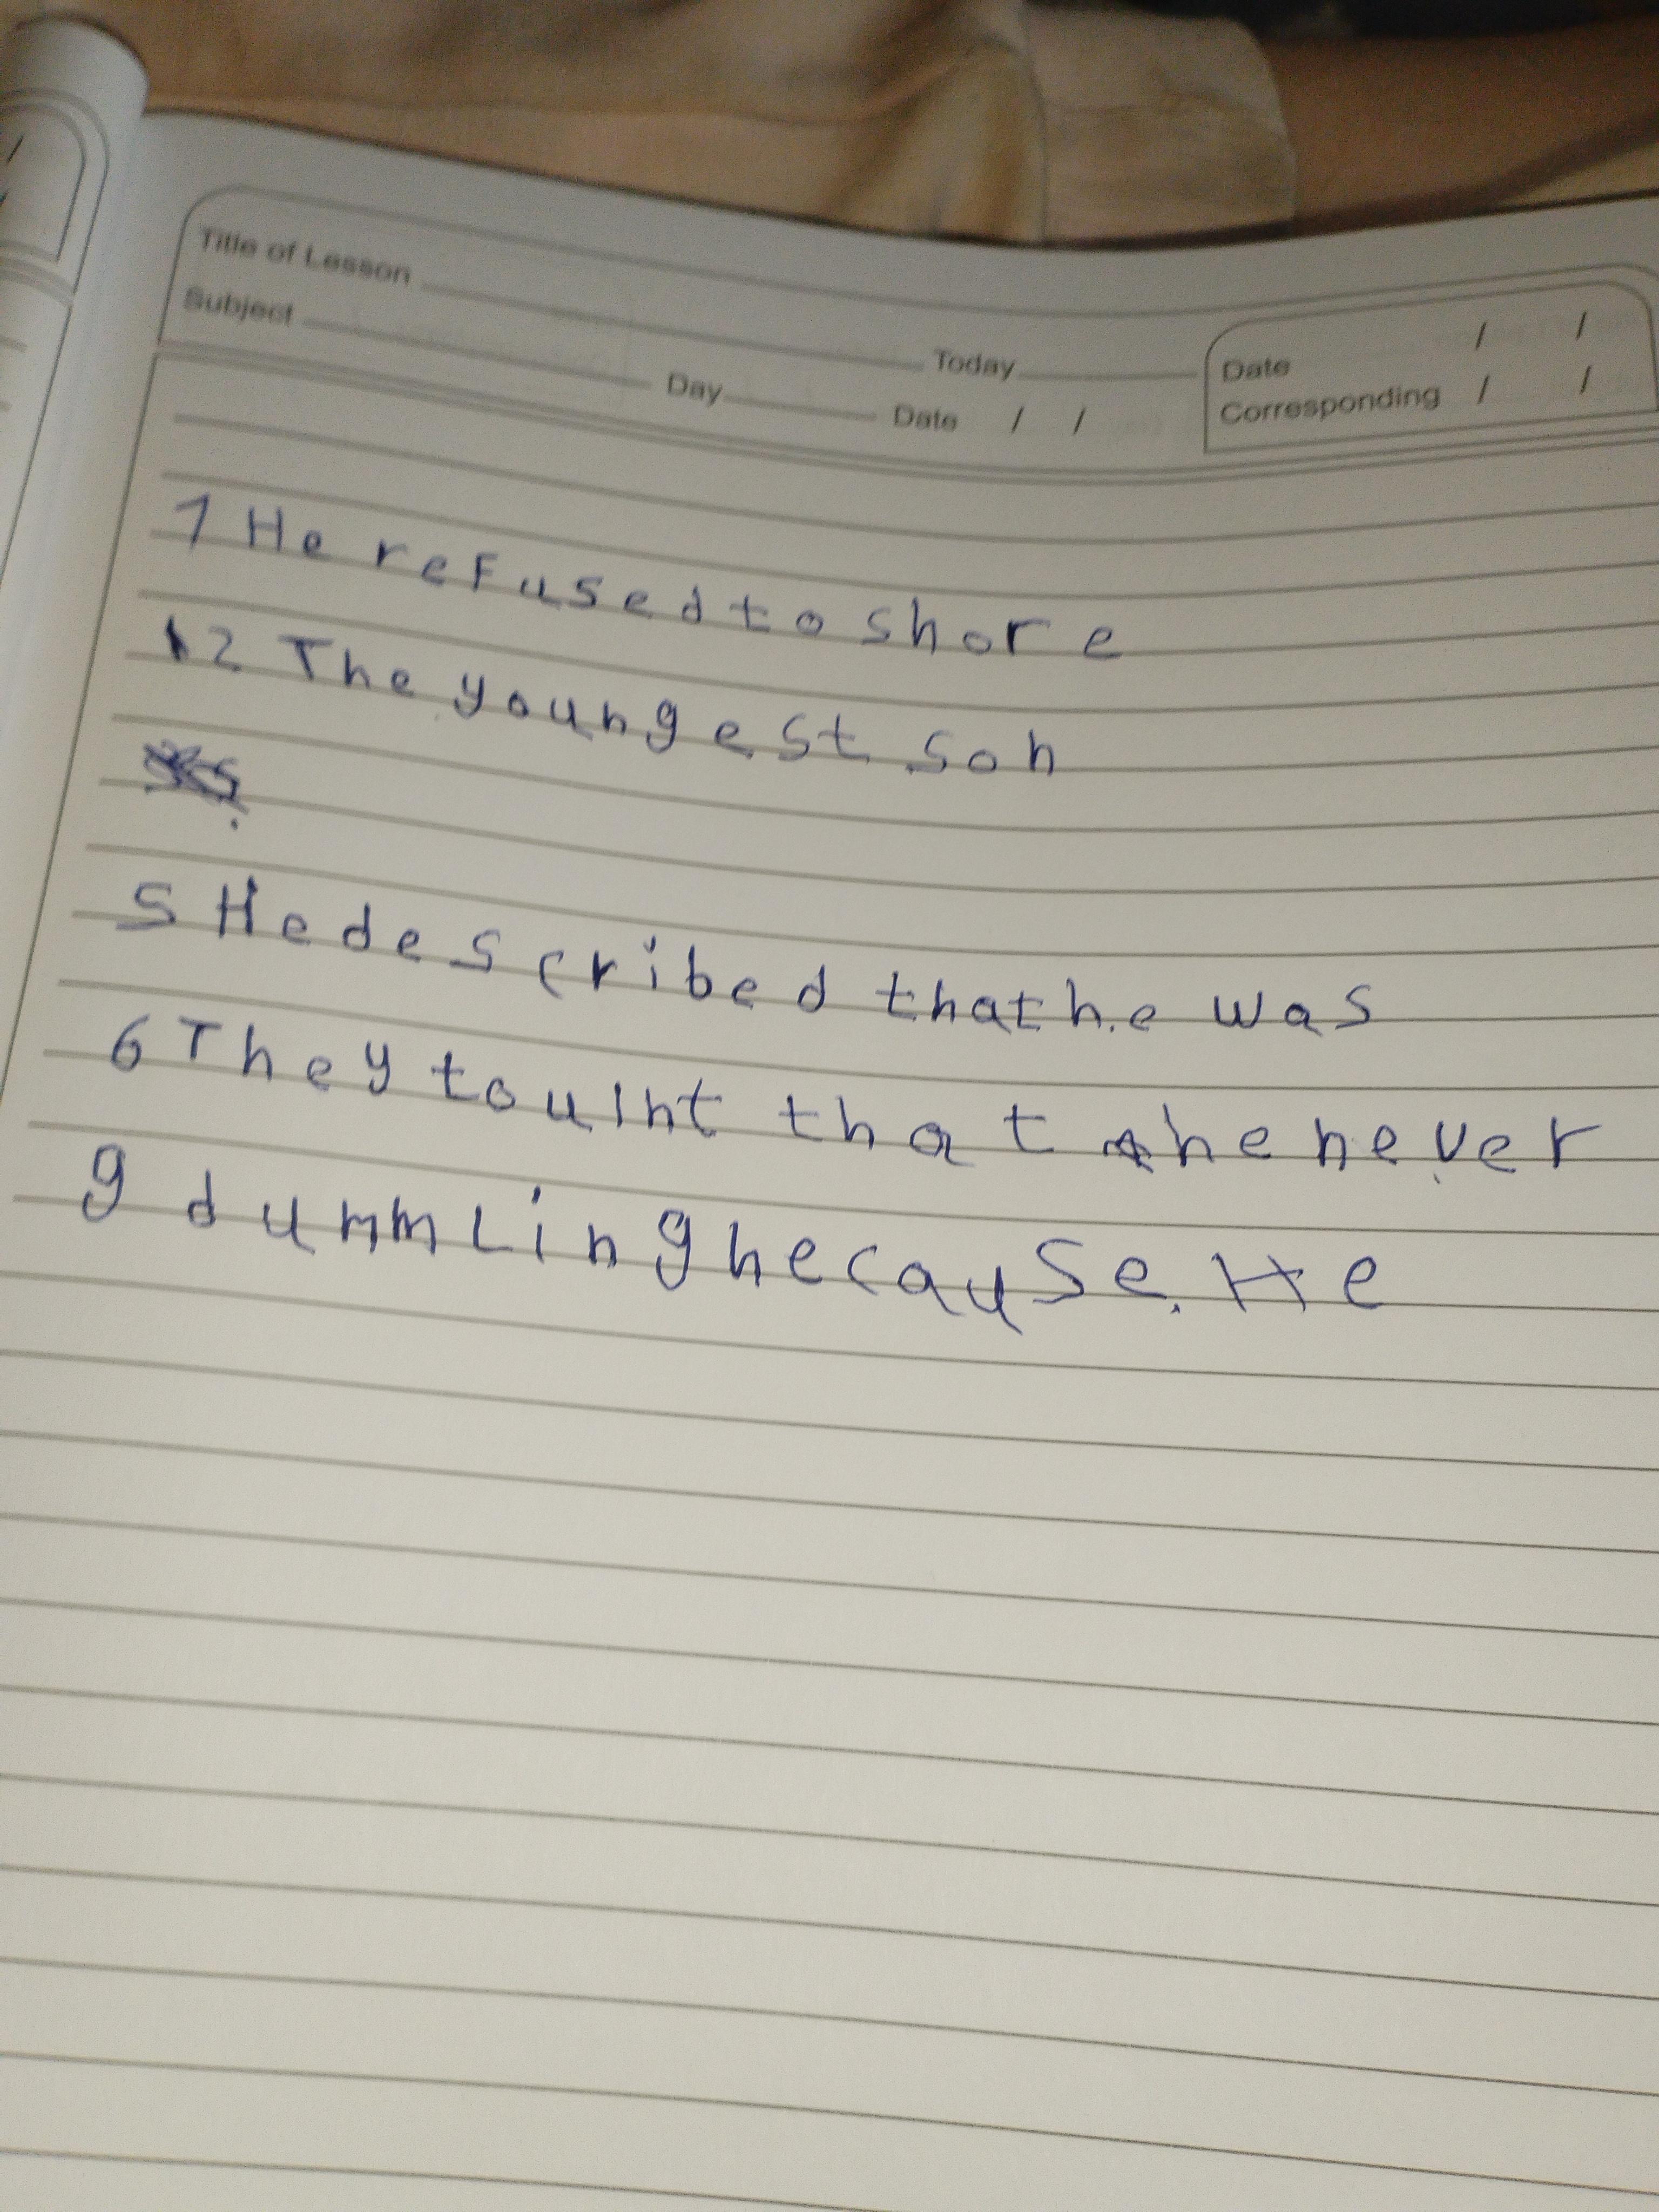 Title of Lesson Today Date / /
Subject Day Date / / Corresponding / /
1 He refused to shore
2 The youngest son
5 He described that he was
6 They touint that he never
9 dummLing hecause. He